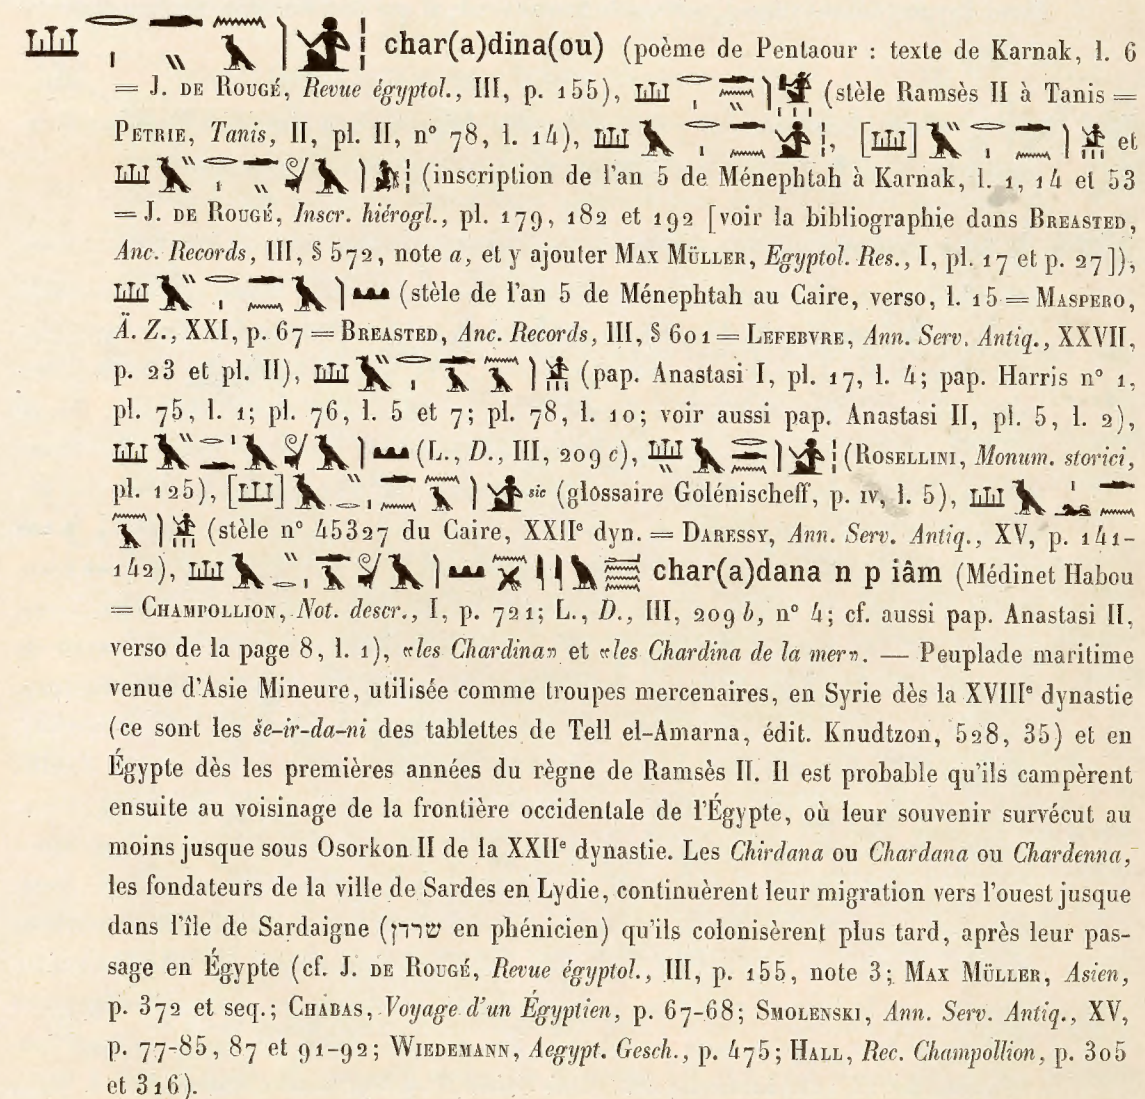 char(a)dina(ou) (poème de Pentaour : texte de Karnak, l. 6
= J. DE ROUGÉ, Revue égyptol., III, p. 155), (stèle Ramsès II à Tanis =
PETRIE, Tanis, II, pl. II, n° 78, l. 14), , [ ] et
(inscription de l'an 5 de Ménephtah à Karnak, l. 1, 14 et 53
= J. DE ROUGÉ, Inscr. hiérogl., pl. 179, 182 et 192 [voir la bibliographie dans BREASTED,
Anc. Records, III, § 572, note a, et y ajouter MAX MÜLLER, Egyptol. Res., I, pl. 17 et p. 27]),
(stèle de l'an 5 de Ménephtah au Caire, verso, l. 15 = MASPERO,
Ä. Z., XXI, p. 67 = BREASTED, Anc. Records, III, § 601 = LEFEBVRE, Ann. Serv. Antiq., XXVII,
p. 23 et pl. II), (pap. Anastasi I, pl. 17, l. 4; pap. Harris n° 1,
pl. 75, l. 1; pl. 76, l. 5 et 7; pl. 78, l. 10; voir aussi pap. Anastasi II, pl. 5, l. 2),
(L., D., III, 209 c), (ROSELLINI, Monum. storici,
pl. 125), [ ] sic (glossaire Golénischeff, p. IV, l. 5),
(stèle n° 45327 du Caire, XXIIe dyn. = DARESSY, Ann. Serv. Antiq., XV, p. 141-
142), char(a)dana n p iâm (Médinet Habou
= CHAMPOLLION, Not. descr., I, p. 721; L., D., III, 209 b, n° 4; cf. aussi pap. Anastasi II,
verso de la page 8, l. 1), «les Chardina» et «les Chardina de la mer». — Peuplade maritime
venue d'Asie Mineure, utilisée comme troupes mercenaires, en Syrie dès la XVIIIe dynastie
(ce sont les še-ir-da-ni des tablettes de Tell el-Amarna, édit. Knudtzon, 528, 35) et en
Égypte dès les premières années du règne de Ramsès II. Il est probable qu'ils campèrent
ensuite au voisinage de la frontière occidentale de l'Égypte, où leur souvenir survécut au
moins jusque sous Osorkon II de la XXIIe dynastie. Les Chirdana ou Chardana ou Chardenna,
les fondateurs de la ville de Sardes en Lydie, continuèrent leur migration vers l'ouest jusque
dans l'île de Sardaigne (שררן en phénicien) qu'ils colonisèrent plus tard, après leur pas-
sage en Égypte (cf. J. DE ROUGÉ, Revue égyptol., III, p. 155, note 3; MAX MÜLLER, Asien,
p. 372 et seq.; CHABAS, Voyage d'un Égyptien, p. 67-68; SMOLENSKI, Ann. Serv. Antiq., XV,
p. 77-85, 87 et 91-92; WIEDEMANN, Aegypt. Gesch., p. 475; HALL, Rec. Champollion, p. 305
et 316).